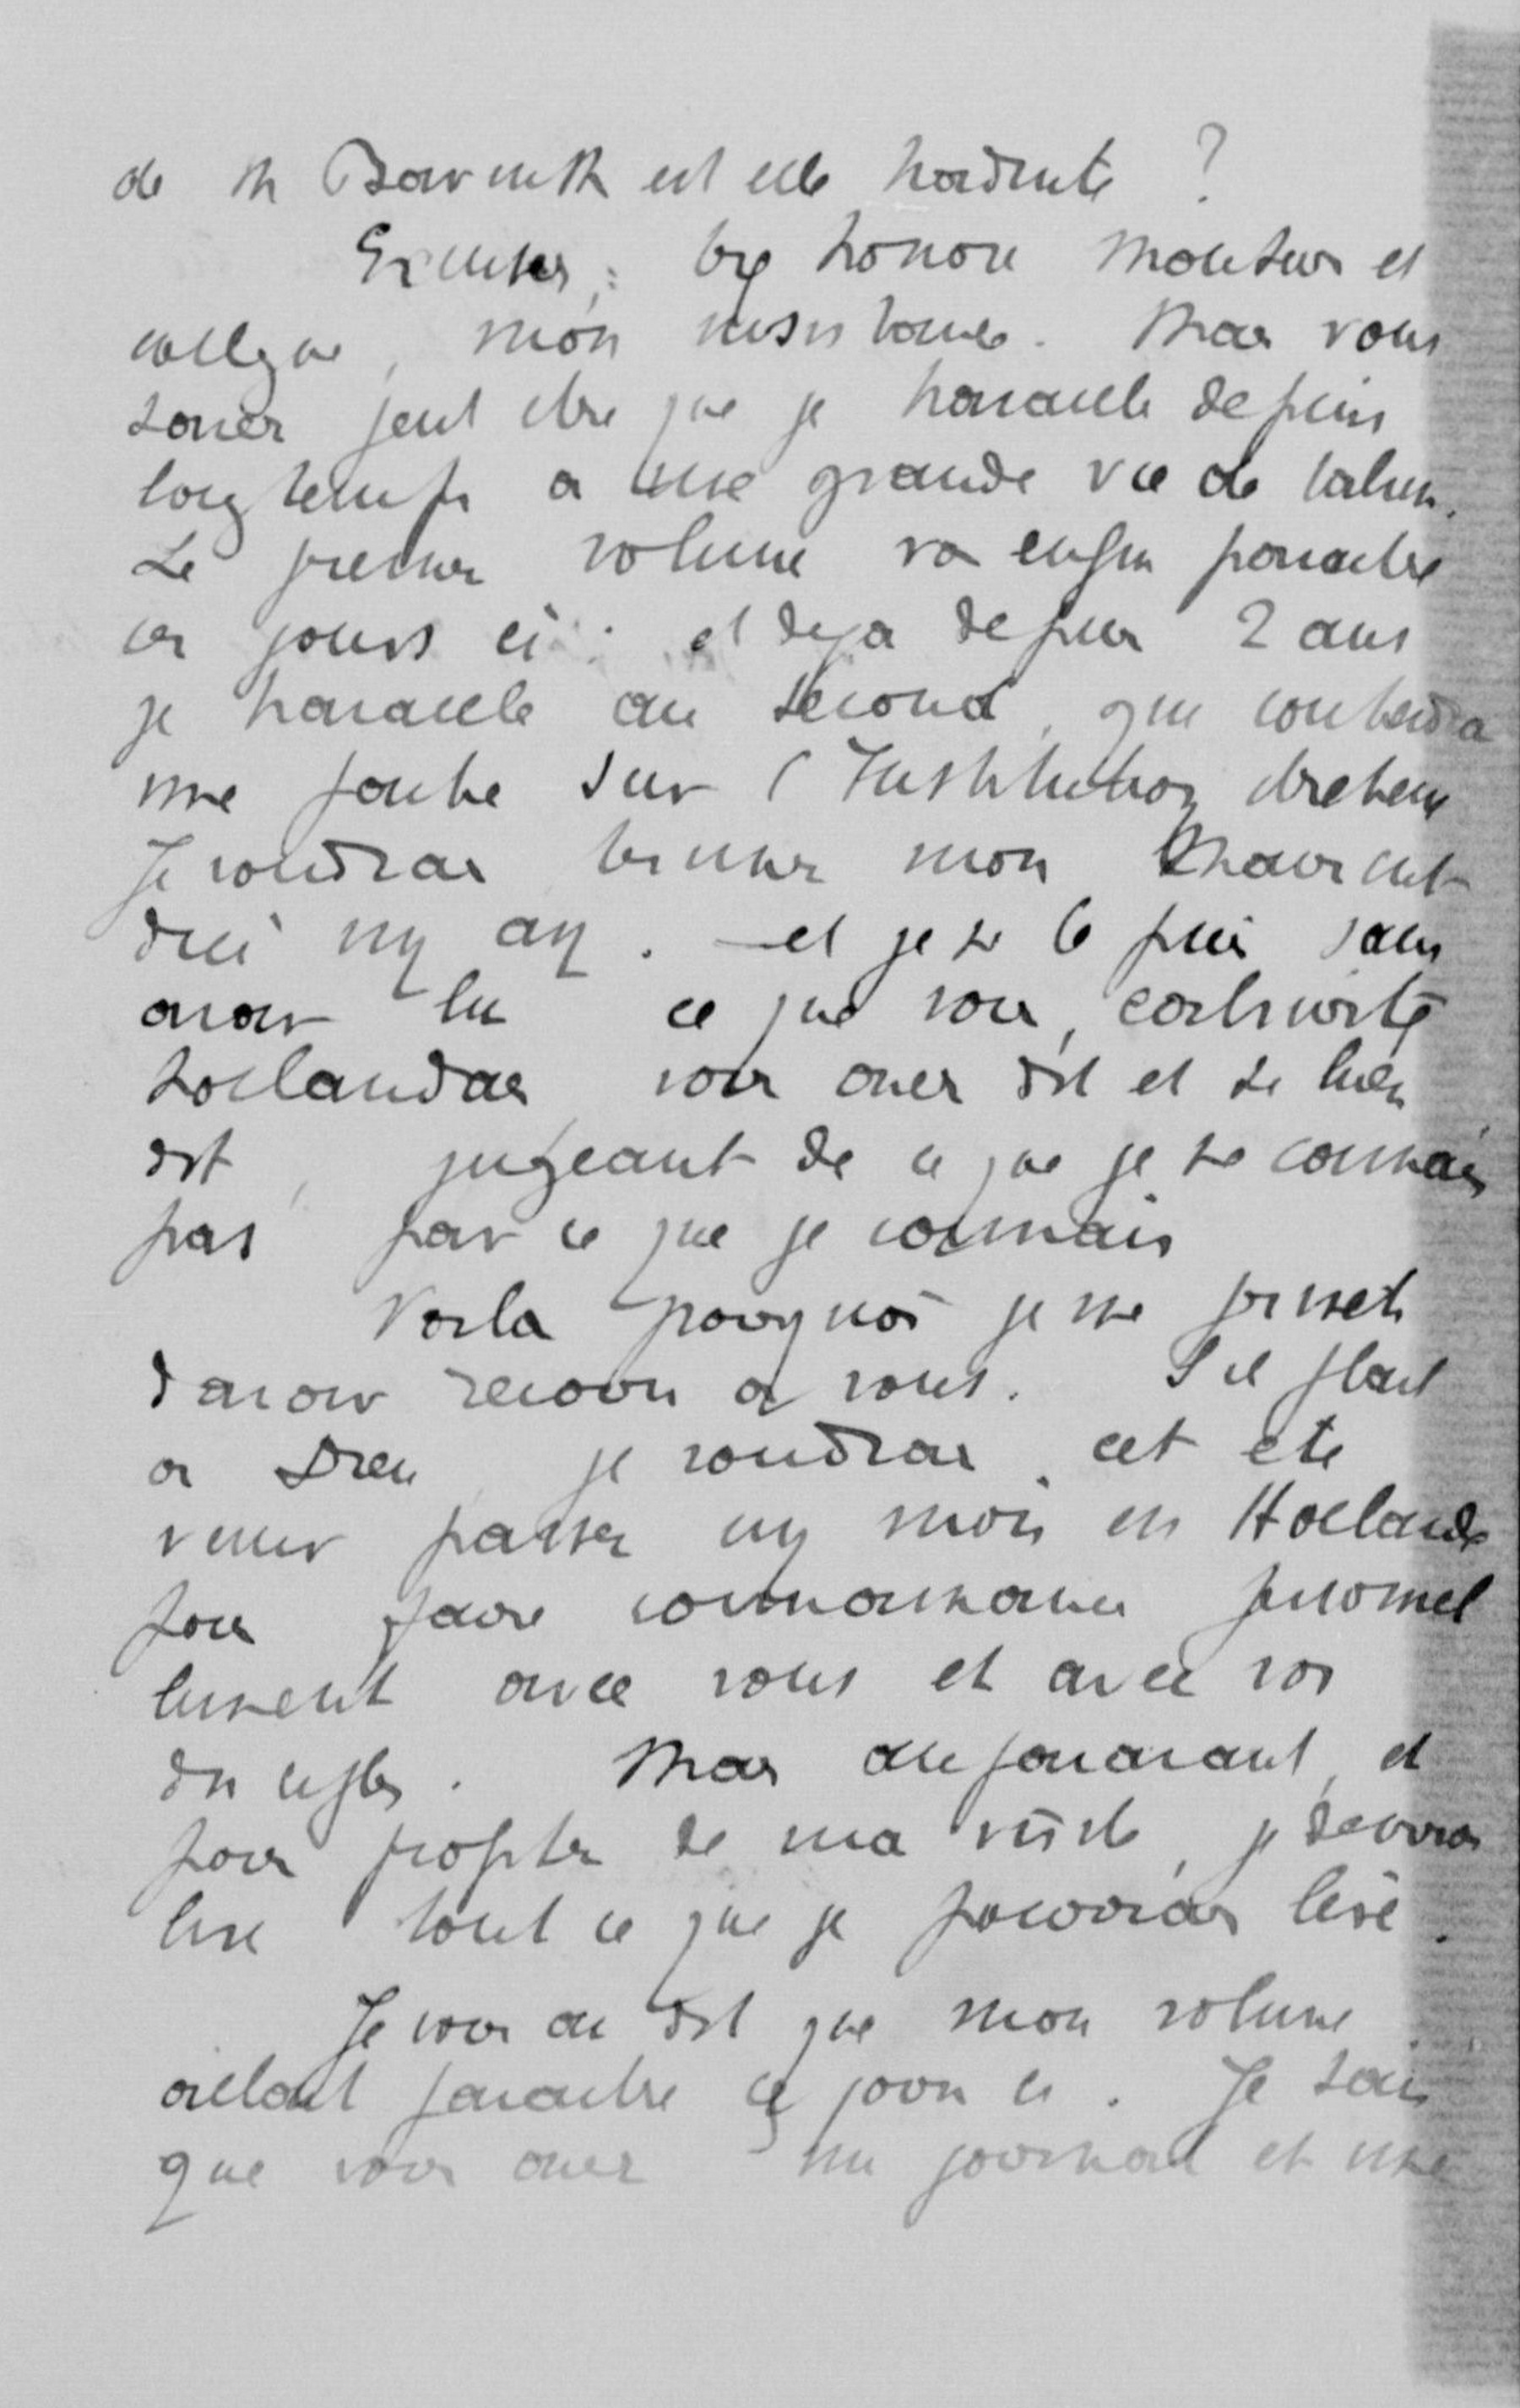 de M Bavinck est elle traduite ?
Excusez, très honoré Monsieur et
collègue, mon insistance. Mais vous
savez peut etre que je travaille depuis
longtemps a une grande vie de Calvin.
Le premier volume va enfin paraitre
ces jours ci : et deja depuis 2 ans
je travaille au second, qui contiendra
une partie sur l Institution chretienne
Je voudrais terminer mon manuscrit
dici un an. et je ne le puis sans
avoir lu ce que vous, calviniste
hollandais vous avez dit et si bien
dit, jugeant de ce que je ne connais
pas par ce que je connais
Voila pourquoi je me permets
d avoir recours a vous. S il plait
a Dieu je voudrais, cet ete
venir passer un mois en Hollande
pour faire connaissance personnel
lement avec vous et avec vos
disciples. Mais auparavant, et
pour profiter de ma visite, je devrais
lire tout ce que je pourrais lire.
Je vous ai dit que mon volume
allait paraitre ces jours ci. Je sais
que vous avez un journal et une